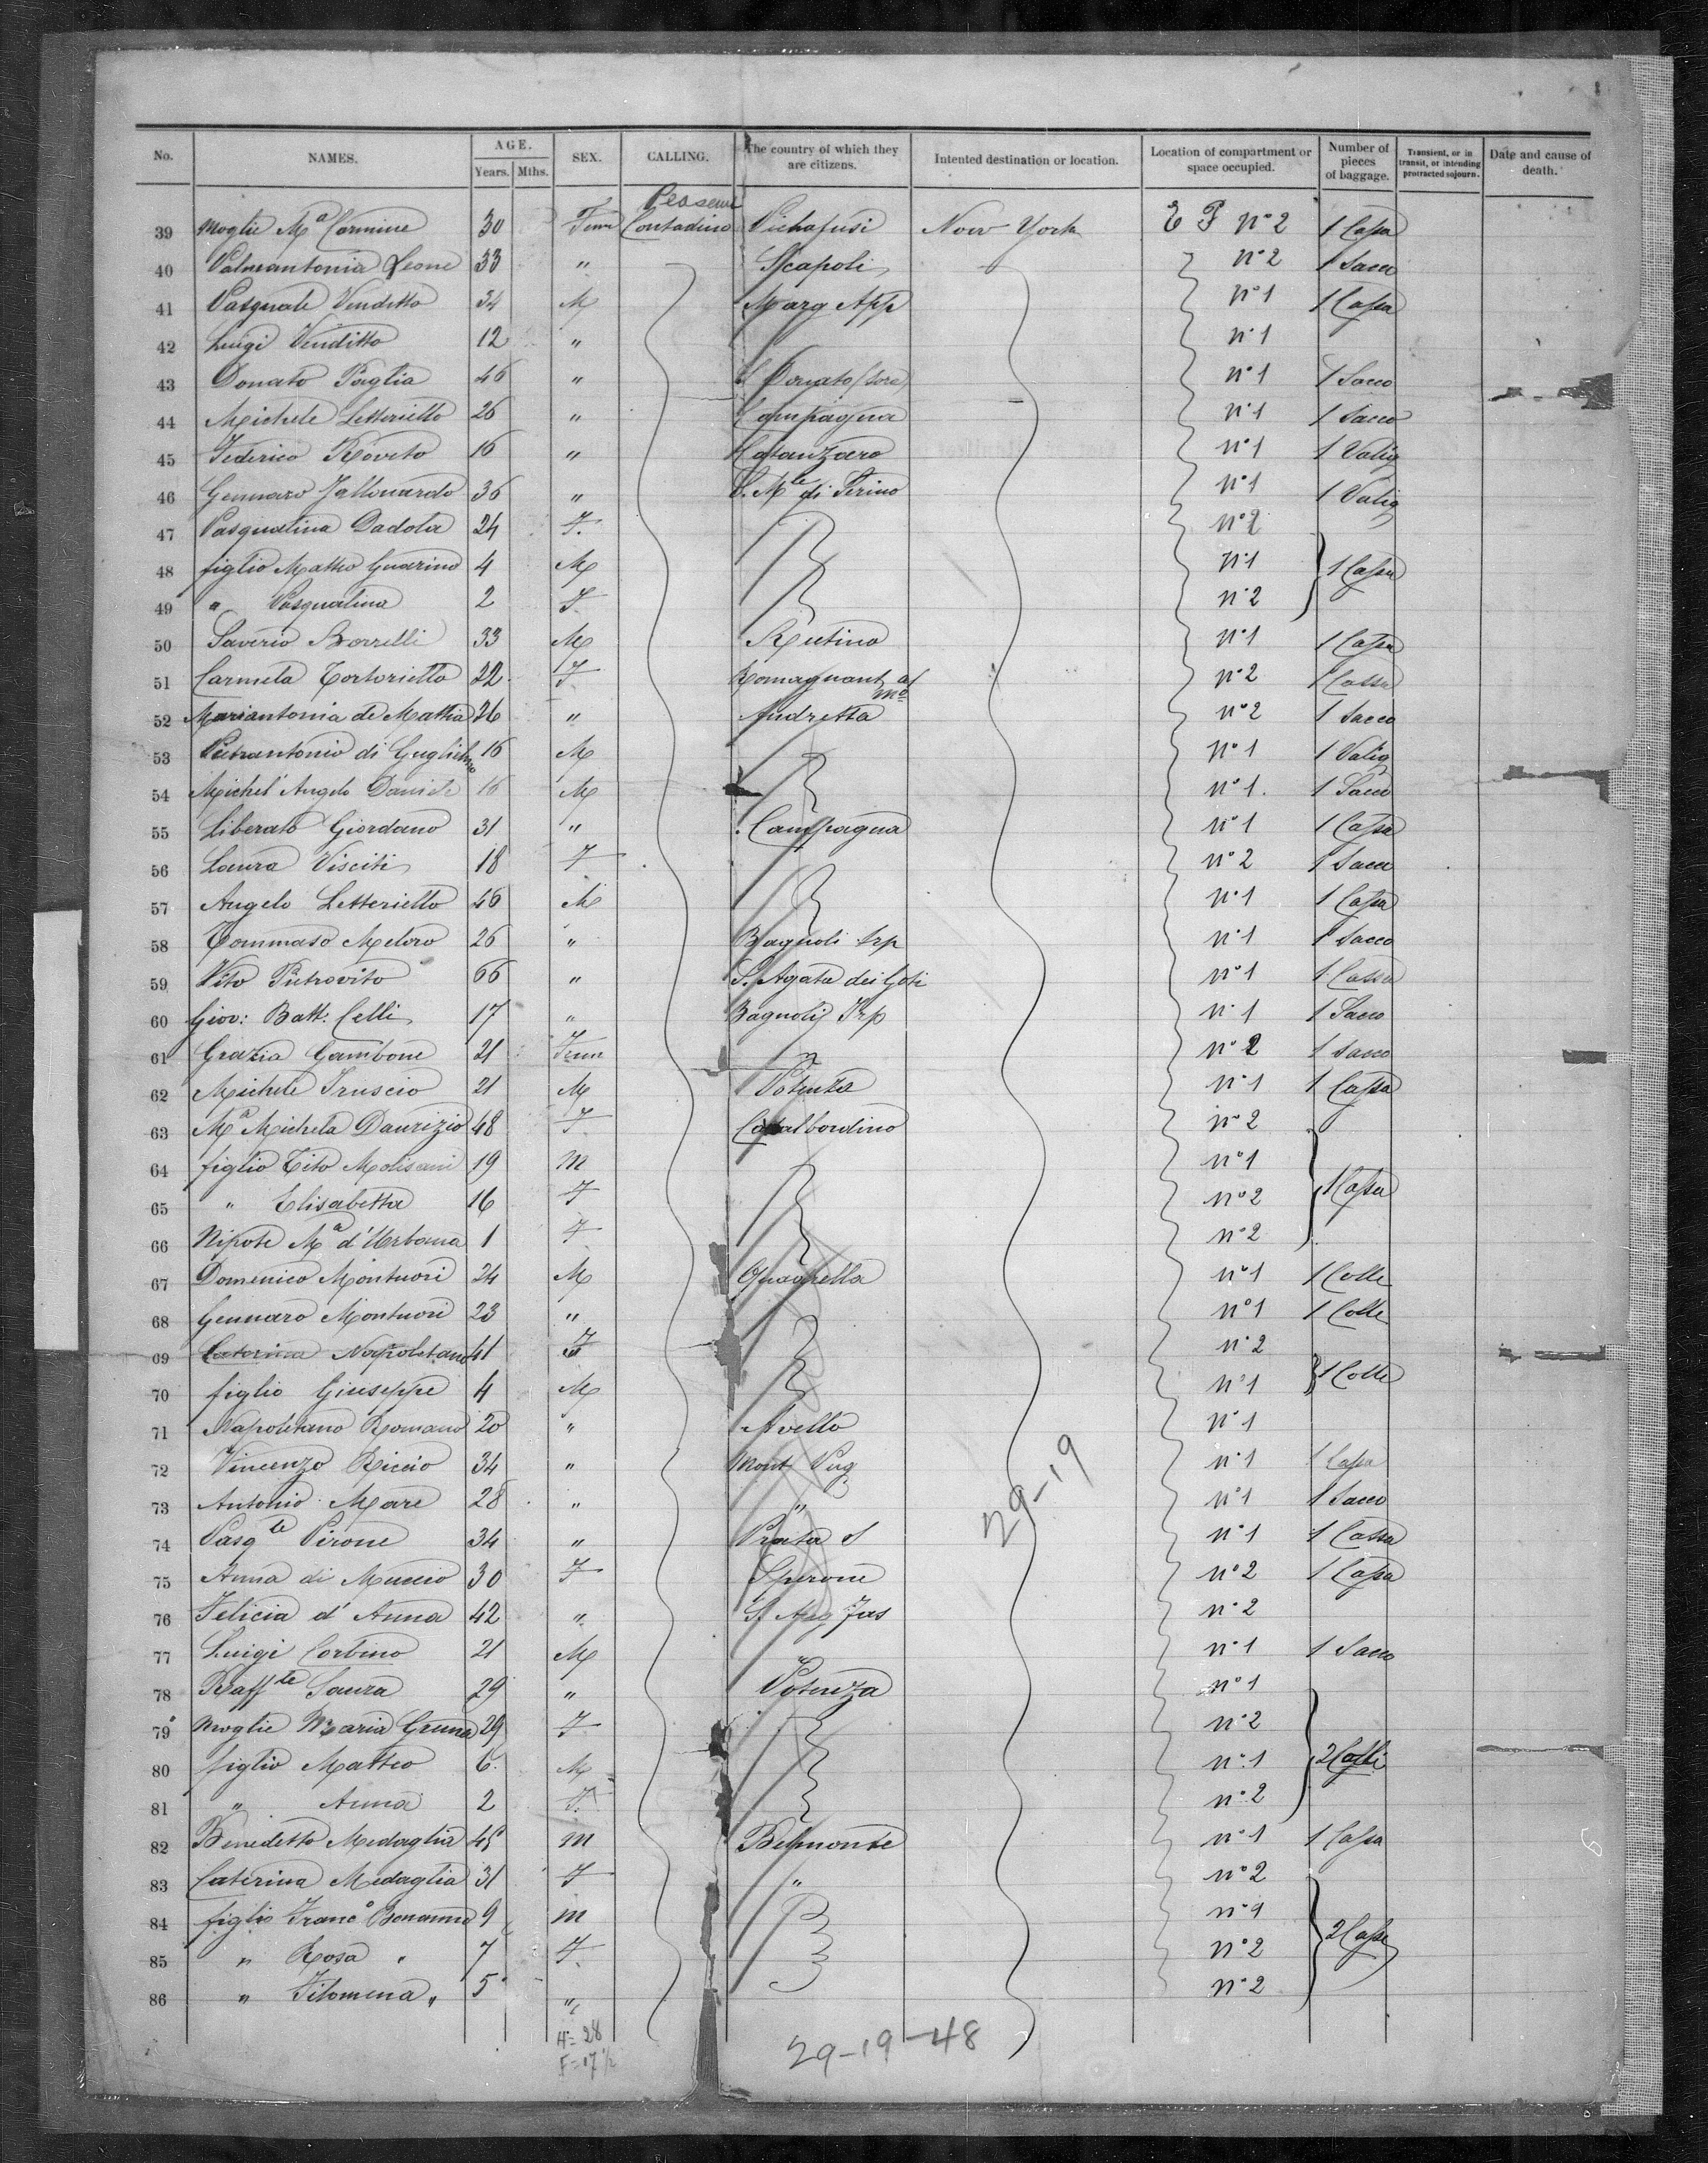 No. NAMES. AGE. Years. Mths. SEX. CALLING. The country of which they are citizens. Intented destination or location. Location of compartment or space occupied. Number of pieces of baggage. Transient, or in transit, or intending protracted sojourn. Date and cause of death.
39 Moglie Mª Carmine 30 Fem Contadino New York E P nº 2 1 Cassa
40 Palmantonia Leone 33 " Scapoli nº 2 1 Sacco
41 Pasquale Venditto 34 M Marg App nº 1 1 Cassa
42 Luigi Venditto 12 " nº 1
43 Donato Paglia 46 " S Donato (Sora) nº 1 1 Sacco
44 Michele Letteriello 26 " Campagna nº 1 1 Sacco
45 Federico Roveto 16 " Catanzaro nº 1 1 Valig
46 Gennaro Jallonardo 36 " nº 1 1 Valig
47 Pasqualina Dadola 24 F. nº 2
48 figlio Matteo Guarino 4 M nº 1 1 Cassa
49 " Pasqualina 2 F nº 2
50 Saverio Borrelli 33 M Rutino nº 1 1 Cassa
51 Carmela Tortoriello 22 F nº 2 1 Cassa
52 Mariantonia de Mattia 26 " Andretta nº 2 1 Sacco
53 Pietrantonio di Guglielmo 16 M nº 1 1 Valig
54 Michel' Angelo Daniele 16 M nº 1. 1 Sacco
55 Liberato Giordano 31 " Campagna nº 1 1 Cassa
56 Laura Visciti 18 F nº 2 1 Sacco
57 Angelo Letteriello 46 M nº 1 1 Cassa
58 Tommaso Meloro 26 " Bagnoli Irp nº 1 1 Sacco
59 Vito Pietrovito 66 " S. Agata dei Goti nº 1 1 Cassa
60 Giov: Batt: Celli 17 " Bagnoli Irp nº 1 1 Sacco
61 Grazia Gambone 21 Fem " nº 2 1 Sacco
62 Michele Truscio 21 M Potenza nº 1 1 Cassa
63 Mª Michela Daurizio 48 F Casalbordino nº 2
64 figlio Tito Molisani 19 M nº 1
65 " Elisabetta 16 F nº 2 1 Cassa
66 Nipote Mª d'Urbana 1 F nº 2
67 Domenico Montuori 24 M Quadrella nº 1 1 Colle
68 Gennaro Montuori 23 " nº 1 1 Colle
69 Caterina Napoletano 41 F nº 2
70 figlio Giuseppe 4 M nº 1 1 Colle
71 Napoletano Romano 20 " Avella nº 1
72 Vincenzo Riccio 34 " Mont Virg nº 1 1 Cassa
73 Antonio Mare 28 " " nº 1 1 Sacco
74 Pasq.le Pirone 34 " Prata S nº 1 1 Cassa
75 Anna di Muccio 30 F Sperone nº 2 1 Cassa
76 Felicia d'Anna 42 " nº 2
77 Luigi Corbino 21 M nº 1 1 Sacco
78 Raff.le Laura 29 " Potenza nº 1
79 Moglie Maria Gruna 29 F nº 2
80 figlio Matteo 6 M nº 1 2 Colli
81 " Anna 2 F. nº 2
82 Benedetto Medaglia 45 M Belmonte nº 1 1 Cassa
83 Caterina Medaglia 31 F " nº 2
84 figlio Franc.º Bonanno 9 M nº 1
85 " Rosa " 7 F nº 2 2 Casse
86 " Filomena " 5 " nº 2
29-19
H = 28
F = 17 ½
29-19-48